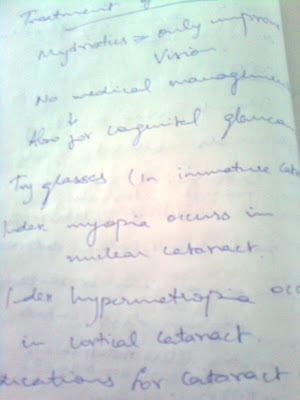 Treatment of
Mydriatics → only improve
Vision
No medical management
Also for cogenital glaucoma
Try glasses (In immature cata
Index myopia occurs in
nuclear cataract.
Index hypermetropia occ
in cortical cataract.
ications for cataract